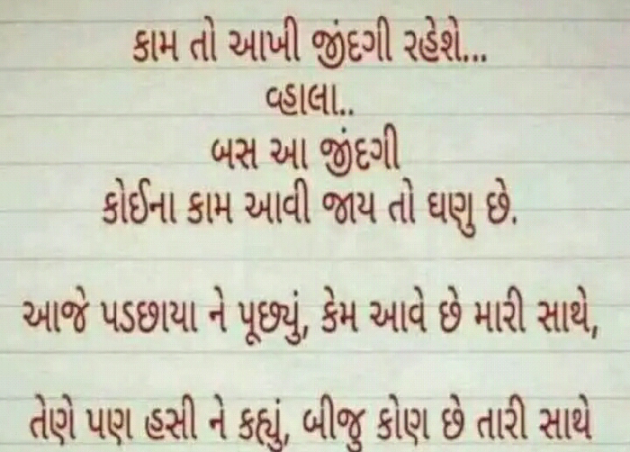 કામ તો આખી જીંદગી રહેશે...
વ્હાલા..
બસ આ જીંદગી
કોઈના કામ આવી જાય તો ઘણુ છે.
આજે પડછાયા ને પૂછ્યું, કેમ આવે છે મારી સાથે,
તેણે પણ હસી ને કહ્યું, બીજુ કોણ છે તારી સાથે